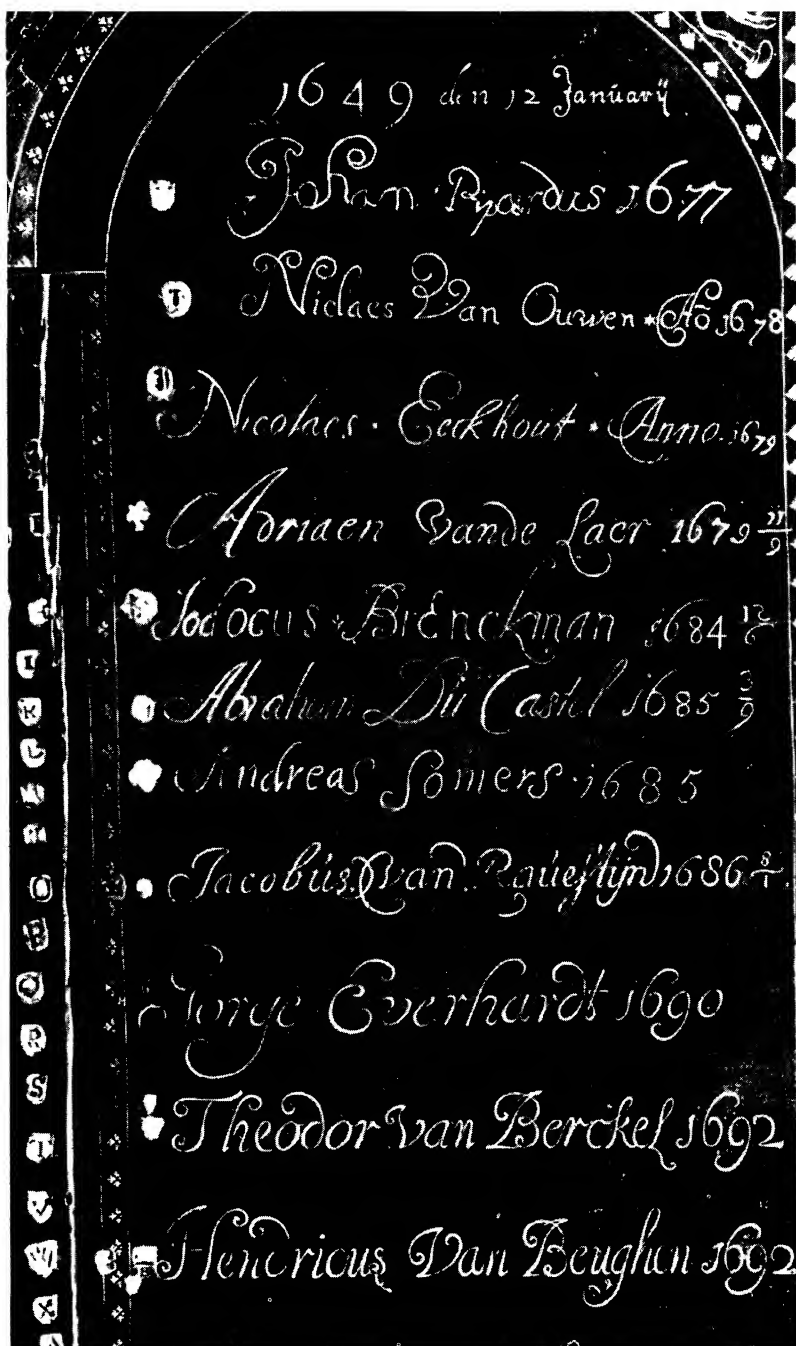 1649 den 12 Januarij
Johan Pijardus 1677
Niclaes Van Ouwen * Aō 1678
Nicolaes · Eeckhout * Anno 1679
Adriaen Vande Laer 1679 11/9
Jodocus Brienckman 1684 12/6
Abraham Du Castel 1685 3/9
Andreas Somers · 1685
Jacobús Van Raúestijn 1686 8/1
Jorge Everhardt 1690
Theodor van Berckel 1692
Hendricus Van Beughen 1692
I
K
L
M
N
O
P
Q
R
S
T
V
W
X